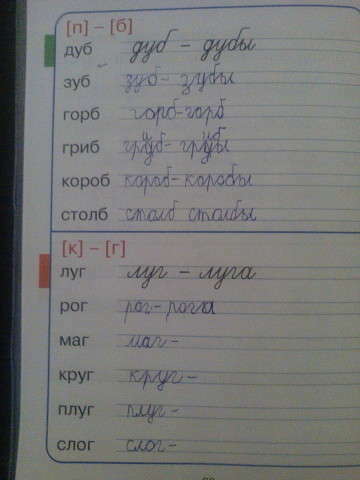 [п] – [б]
дуб дуб – дубы
зуб зуб – зубы
горб горб-горб
гриб
короб короб-коробы
столб столб столбы
[к] – [г]
луг луг – луга
рог рог-рога
маг маг-
круг круг –
плуг плуг-
слог слог-